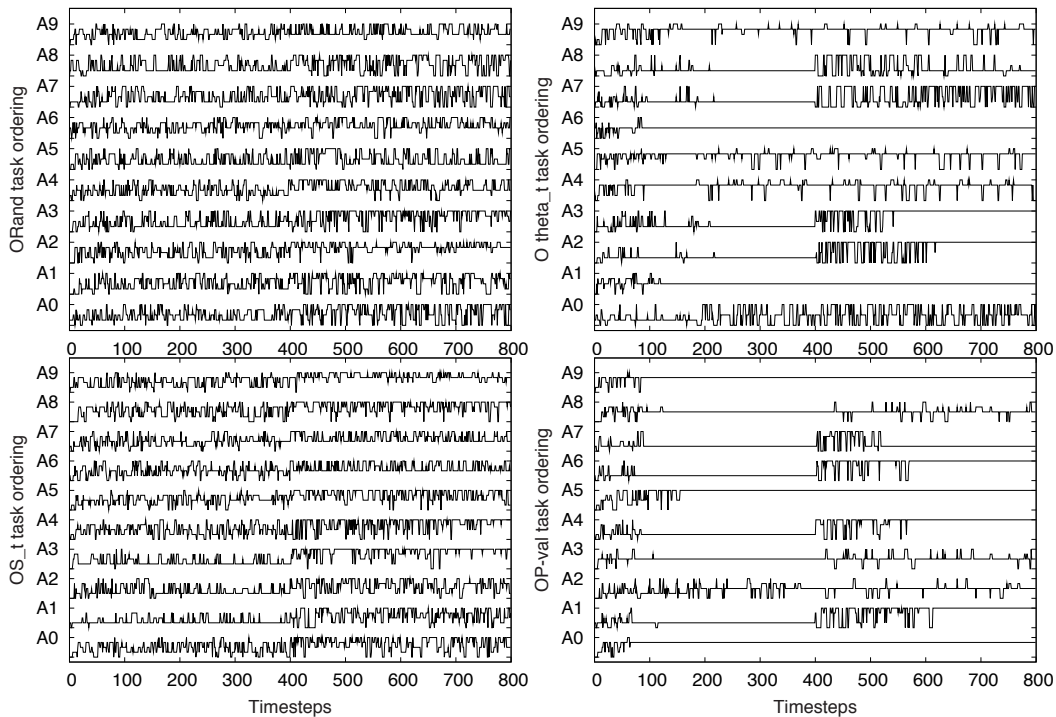 ORand task ordering
A9
A8
A7
A6
A5
A4
A3
A2
A1
A0
0 100 200 300 400 500 600 700 800
O theta_t task ordering
A9
A8
A7
A6
A5
A4
A3
A2
A1
A0
0 100 200 300 400 500 600 700 800
OS_t task ordering
A9
A8
A7
A6
A5
A4
A3
A2
A1
A0
0 100 200 300 400 500 600 700 800
Timesteps
OP-val task ordering
A9
A8
A7
A6
A5
A4
A3
A2
A1
A0
0 100 200 300 400 500 600 700 800
Timesteps